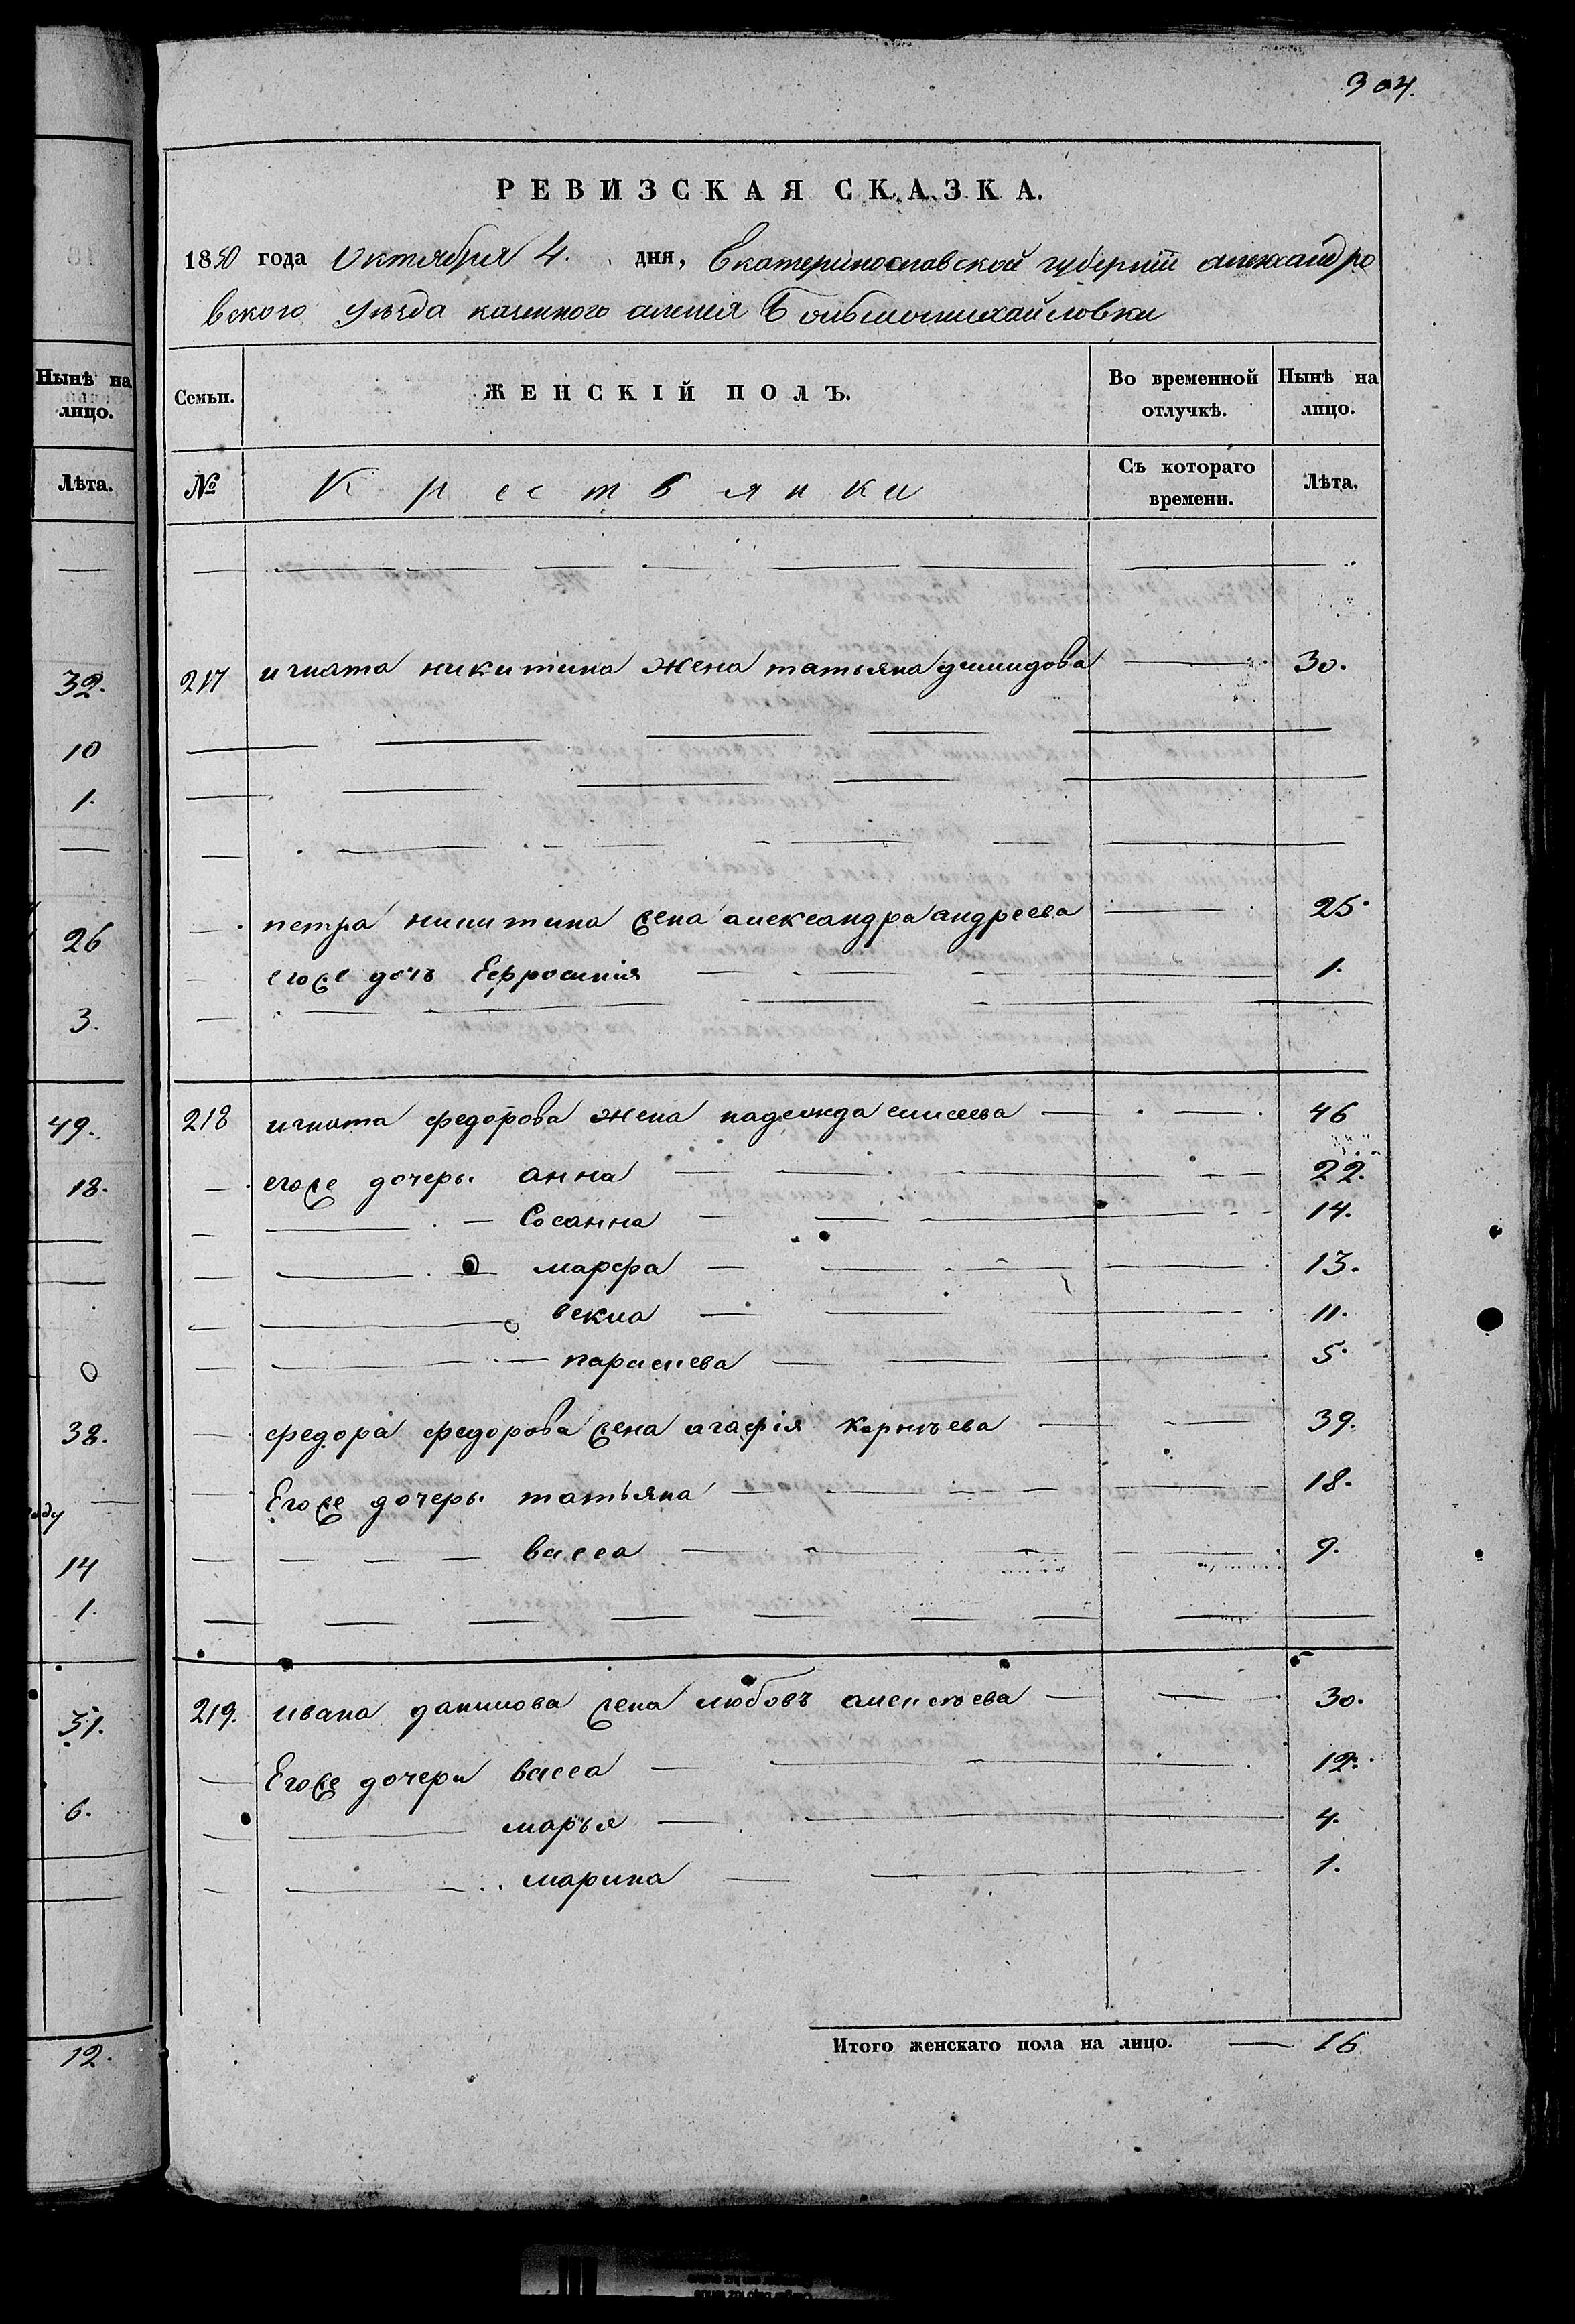 304.
РЕВИЗСКАЯ СКАЗКА.
1850 года Октября 4. дня, Екатеринославской губерніи александро
вского уъзда казенного селенія Большомихайловки
Нынѣ на лицо.
Семьи.
ЖЕНСКІЙ ПОЛЪ.
Во временной отлучкѣ.
Нынѣ на лицо.
Лѣта.
№
Крестьянки
Съ котораго времени.
Лѣта.
32.
217 игната никитина жена татьяна демидова 30.
10
1.
петра никитина жена александра андреева 25.
26
егоже дочь Ефросинія 1.
3.
49.
218 игната федорова жена надежда елисеева 46
18.
егоже дочери анна 22.
Сосанна 14.
марфа 13.
векла 11.
0
парасшева 5.
38.
федора федорова жена агафія корнѣева 39.
Егоже дочери татьяна 18.
васса 9.
14
1.
31.
219. ивана данилова жена любовъ алексѣева 30.
Егоже дочери васса 12.
6.
марья 4.
марина 1.
12.
Итого женскаго пола на лицо. 16.